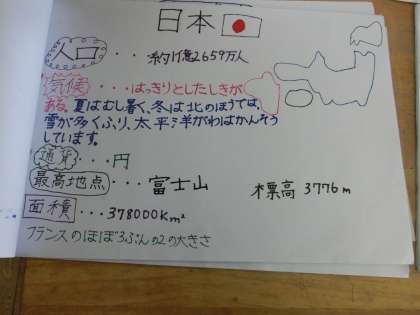 日本
人口・・・約1億2659万人
気候・・・はっきりとしたしきが
ある。夏はむし暑く、冬は北のほうでは、
雪が多くふり、太平洋がわはかんそう
しています。
通貨・・・円
最高地点・・・富士山 標高 3776m
面積・・・378000Km²
フランスのほぼ3ぶんの2の大きさ